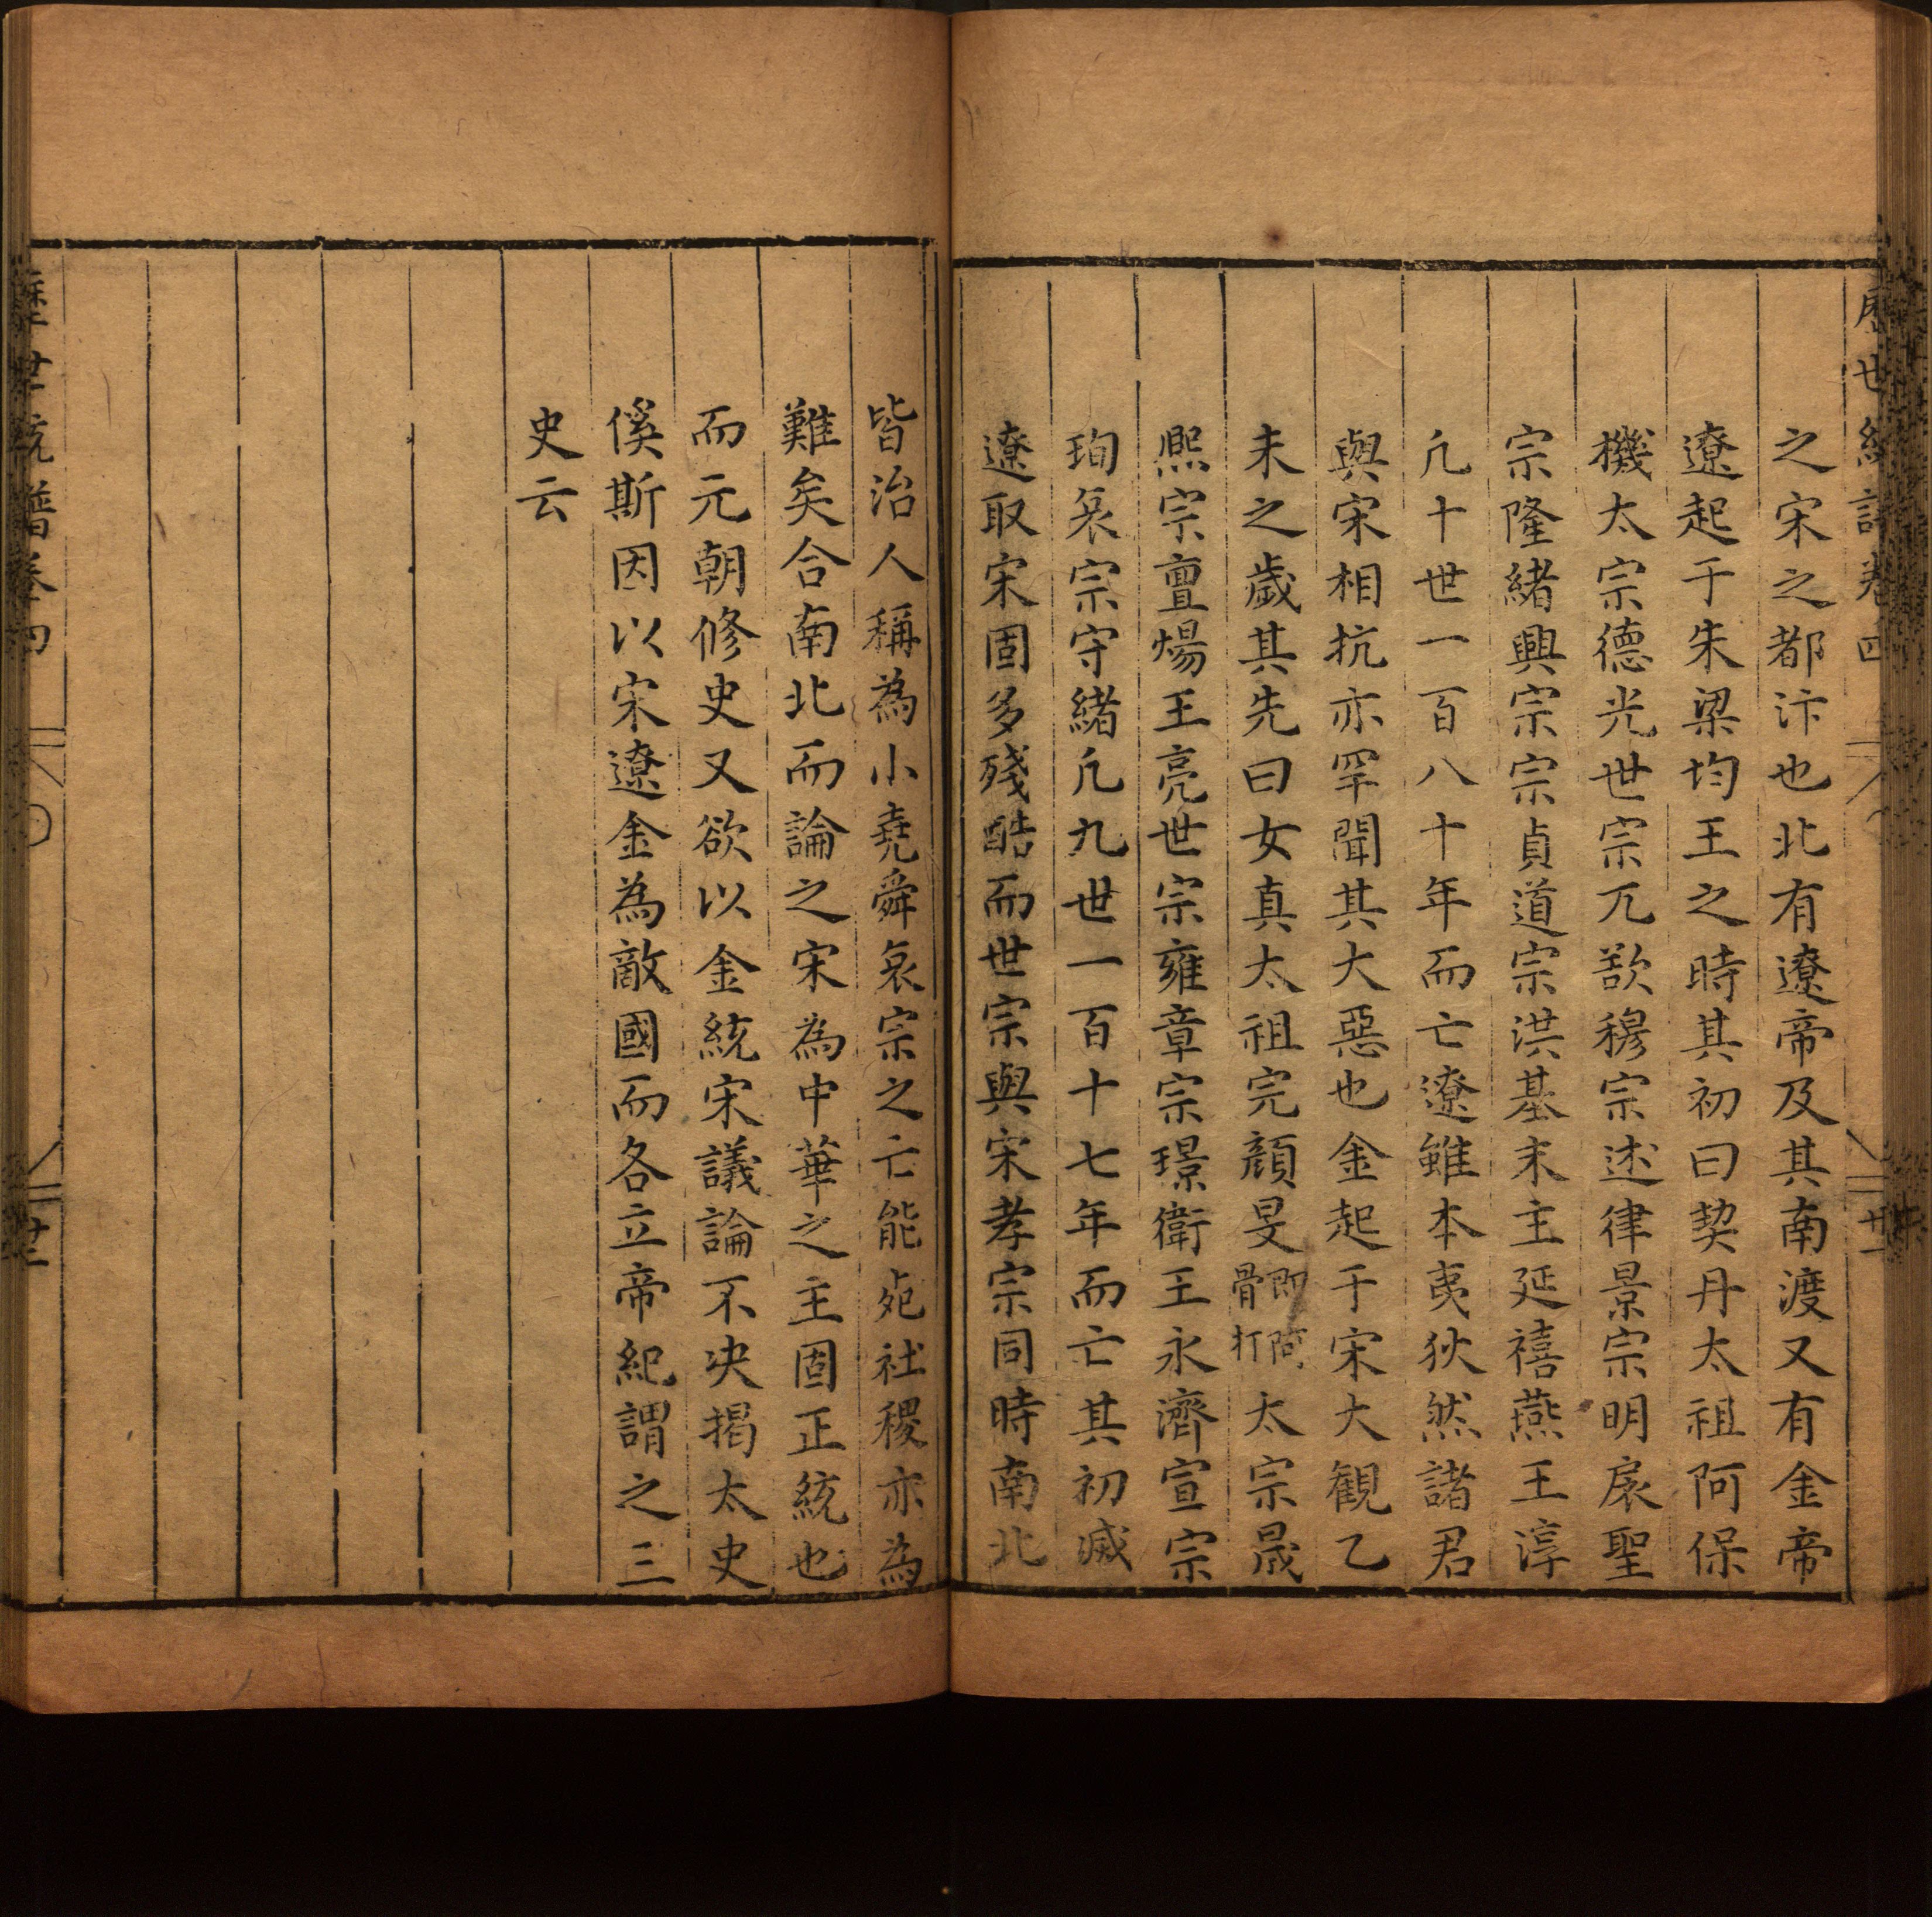 歷世統譜卷四
廿一
之宋之都汴也北有遼帝及其南渡又有金帝
遼起于朱梁均王之時其初曰契丹太祖阿保
機太宗德光世宗兀欲穆宗述律景宗明扆聖
宗隆緒興宗宗貞道宗洪基末主延禧燕王淳
凢十世一百八十年而亡遼雖本夷狄然諸君
與宋相抗亦罕聞其大惡也金起于宋大觀乙
未之歲其先曰女真太祖完顏旻即阿骨打太宗晟
熈宗亶煬王亮世宗雍章宗璟衛王永濟宣宗
珣哀宗守緒凢九世一百十七年而亡其初滅
遼取宋固多殘酷而世宗與宋孝宗同時南北
皆治人稱為小堯舜哀宗之亡能死社稷亦為
難矣合南北而論之宋為中華之主固正統也
而元朝修史又欲以金統宋議論不决揭太史
傒斯因以宋遼金為敵國而各立帝紀謂之三
史云
歷世統譜卷四
廿二